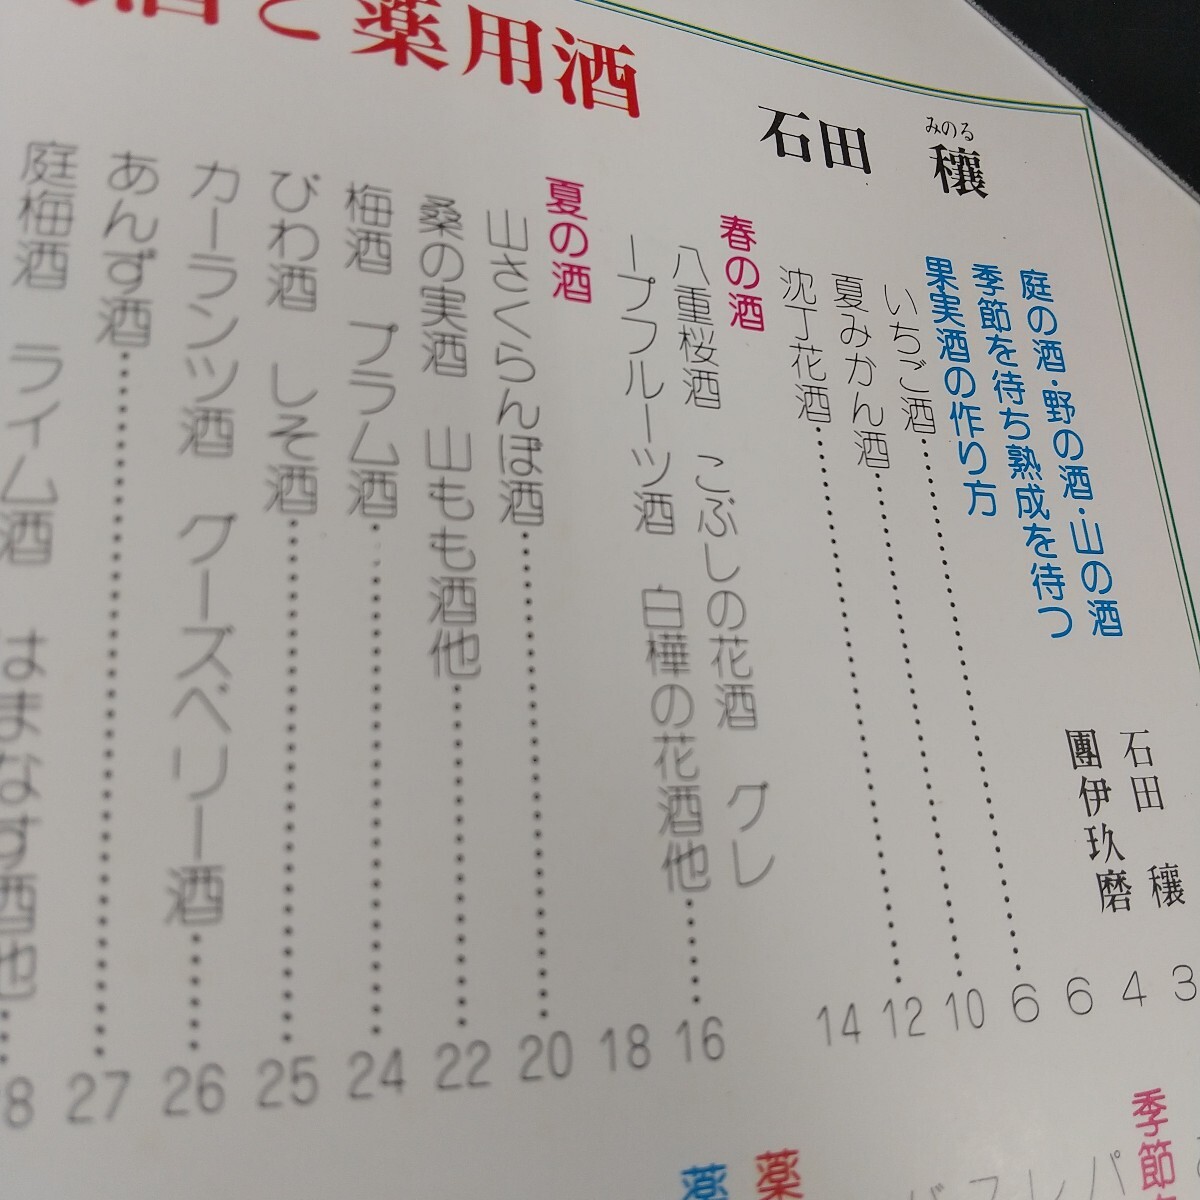 酒と薬用酒
石田 穣
みのる
庭の酒・野の酒・山の酒 石田 穣 3
季節を待ち熟成を待つ 團伊玖磨 4
果実酒の作り方 6
いちご酒 6
夏みかん酒 10
沈丁花酒 12
春の酒 14
八重桜酒 こぶしの花酒 グレ
ープフルーツ酒 白樺の花酒他 16
夏の酒 18
山さくらんぼ酒 20
桑の実酒 山もも酒他 22
梅酒 プラム酒 24
びわ酒 しそ酒 25
カーランツ酒 グーズベリー酒 26
あんず酒 27
庭梅酒 ライム酒 はまなす酒他 8
季節
薬
薬